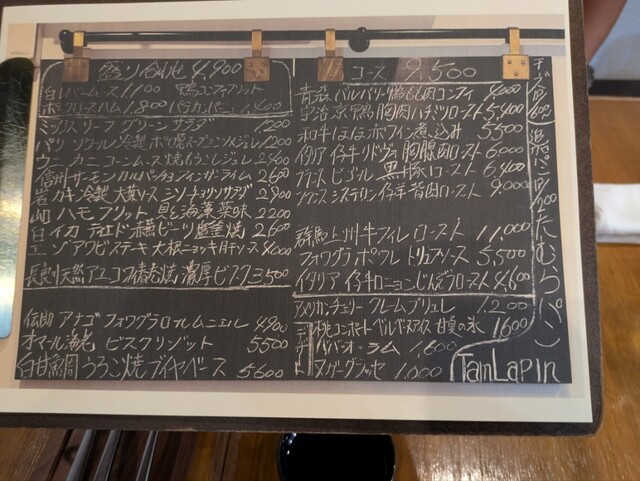 盛り合せ 4,900
白レバームース 1100 鴨コンフィフリット
ポークロースハム 1,800 パラカンパニュ 1,400
ミックスリーフグリーンサラダ 1,200
パリソワール 冷製 コンソメジュレ 1,200
ウニ カニ コーンムース 焼もろこしジュレ 2400
信州サーモン カルパッチョ フィンガーライム 2600
岩カキ冷製 大葉ソース 2900
ハモフリット 貝と海藻薬味 2200
白イカ 赤燕ビーツ 塩釜焼 2600
エゾアワビステキ 大根ニョッキ 肝ソース 4000
長良川天然アユ 巻焼 濃厚ビスク 3500
伝助アナゴ フォワグラ ムニエル 4900
オマール海老 ビスクリゾット 5500
白甘鯛 うろこ焼 ブイヤベース 5600
コース 9,500
青森バルバリー鴨もも肉コンフィ 4,000
京鴨胸肉ハチミツロースト 5,400
和牛ほほ赤ワイン煮込み 5500
イタリア仔牛リドヴォ 胸腺肉ロースト 6,000
フランスビゴール黒豚ロースト 6,400
フランスシステロン仔羊背肉ロースト 9,000
群馬上州牛フィレロースト 11,000
フォワグラポワレ トリュフソース 5,500
イタリア仔牛ロニョン じんぞうロースト 4,600
アメリカンチェリー クレームブリュレ 1,200
桃コンポート ベルベンヌアイス 甘夏の氷 1600
ババオ・ラム 1,600
ヌガーグラッセ 1,000
たむらパン
TainLapin